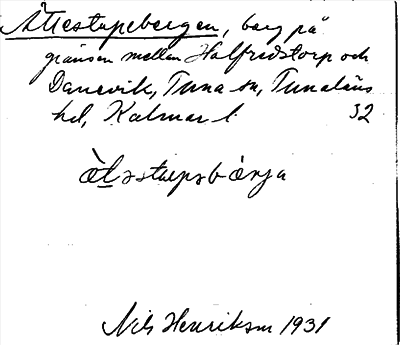 Ättestupebergen, berg på
gränsen mellan Halfredstorp och
Danevik, Tuna sn, Tunaläns
hd, Kalmar l. 32
Nils Henriksson 1931